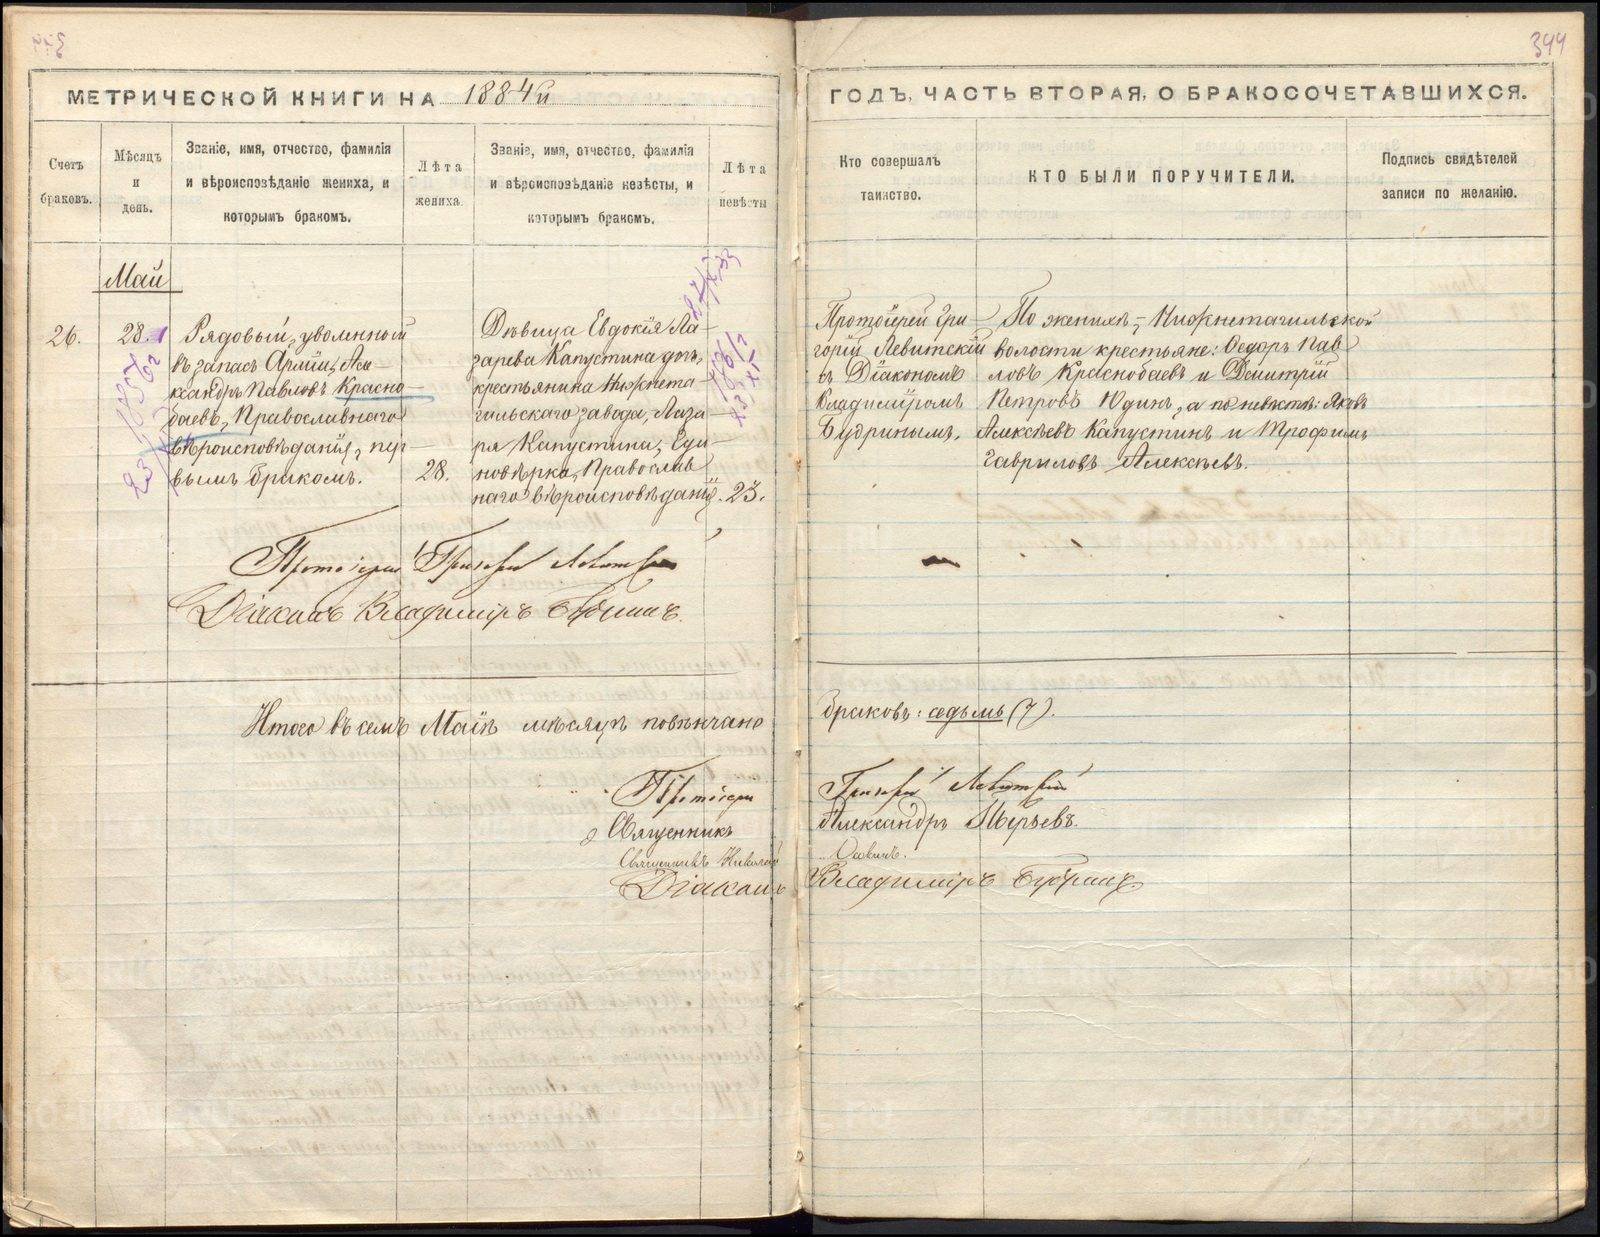 344
МЕТРИЧЕСКОЙ КНИГИ НА 1884й
ГОДЪ, ЧАСТЬ ВТОРАЯ, О БРАКОСОЧЕТАВШИХСЯ.
Счетъ
браковъ.
Мѣсяцъ
и
день.
Званіе, имя, отчество, фамилія
и вѣроисповѣданіе жениха, и
которымъ бракомъ.
Лѣта
жениха.
Званіе, имя, отчество, фамилія
и вѣроисповѣданіе невѣсты, и
которымъ бракомъ.
Лѣта
невѣсты
Кто совершалъ
таинство.
КТО БЫЛИ ПОРУЧИТЕЛИ.
Подпись свидѣтелей
записи по желанію.
Май
26.
28.
Рядовый, уволенный
въ запасъ Арміи, Але-
ксандръ Павловъ Красно-
баевъ, Православнаго
вѣроисповѣданія, пер-
вымъ бракомъ.
28.
Дѣвица Евдокія Ла-
зарева Капустина дочь
крестьянина Нижнета-
гильскаго завода, Лаза-
ря Капустина, Еди-
новѣрка, Православ
наго вѣроисповѣданія.
23.
Протоіерей Гри
горій Левитскій
съ Діакономъ
Владиміромъ
Будринымъ.
По женихѣ – Нижнетагильской
волости крестьяне: Ѳедоръ Пав
ловъ Краснобаевъ и Димитрій
Петровъ Юдинъ, а по невѣстѣ: Яковъ
Алексѣевъ Капустинъ и Трофимъ
Гавриловъ Алексѣевъ.
Протоіерей Григорій Левитскій
Діаконъ Владиміръ Будринъ.
Итого въ семъ Маѣ мѣсяцѣ повѣнчано
браковъ: седьмь (7).
Протоіерей Григорій Левитскій
Священникъ Александръ
Священникъ Николай
Діаконъ Владиміръ Будринъ